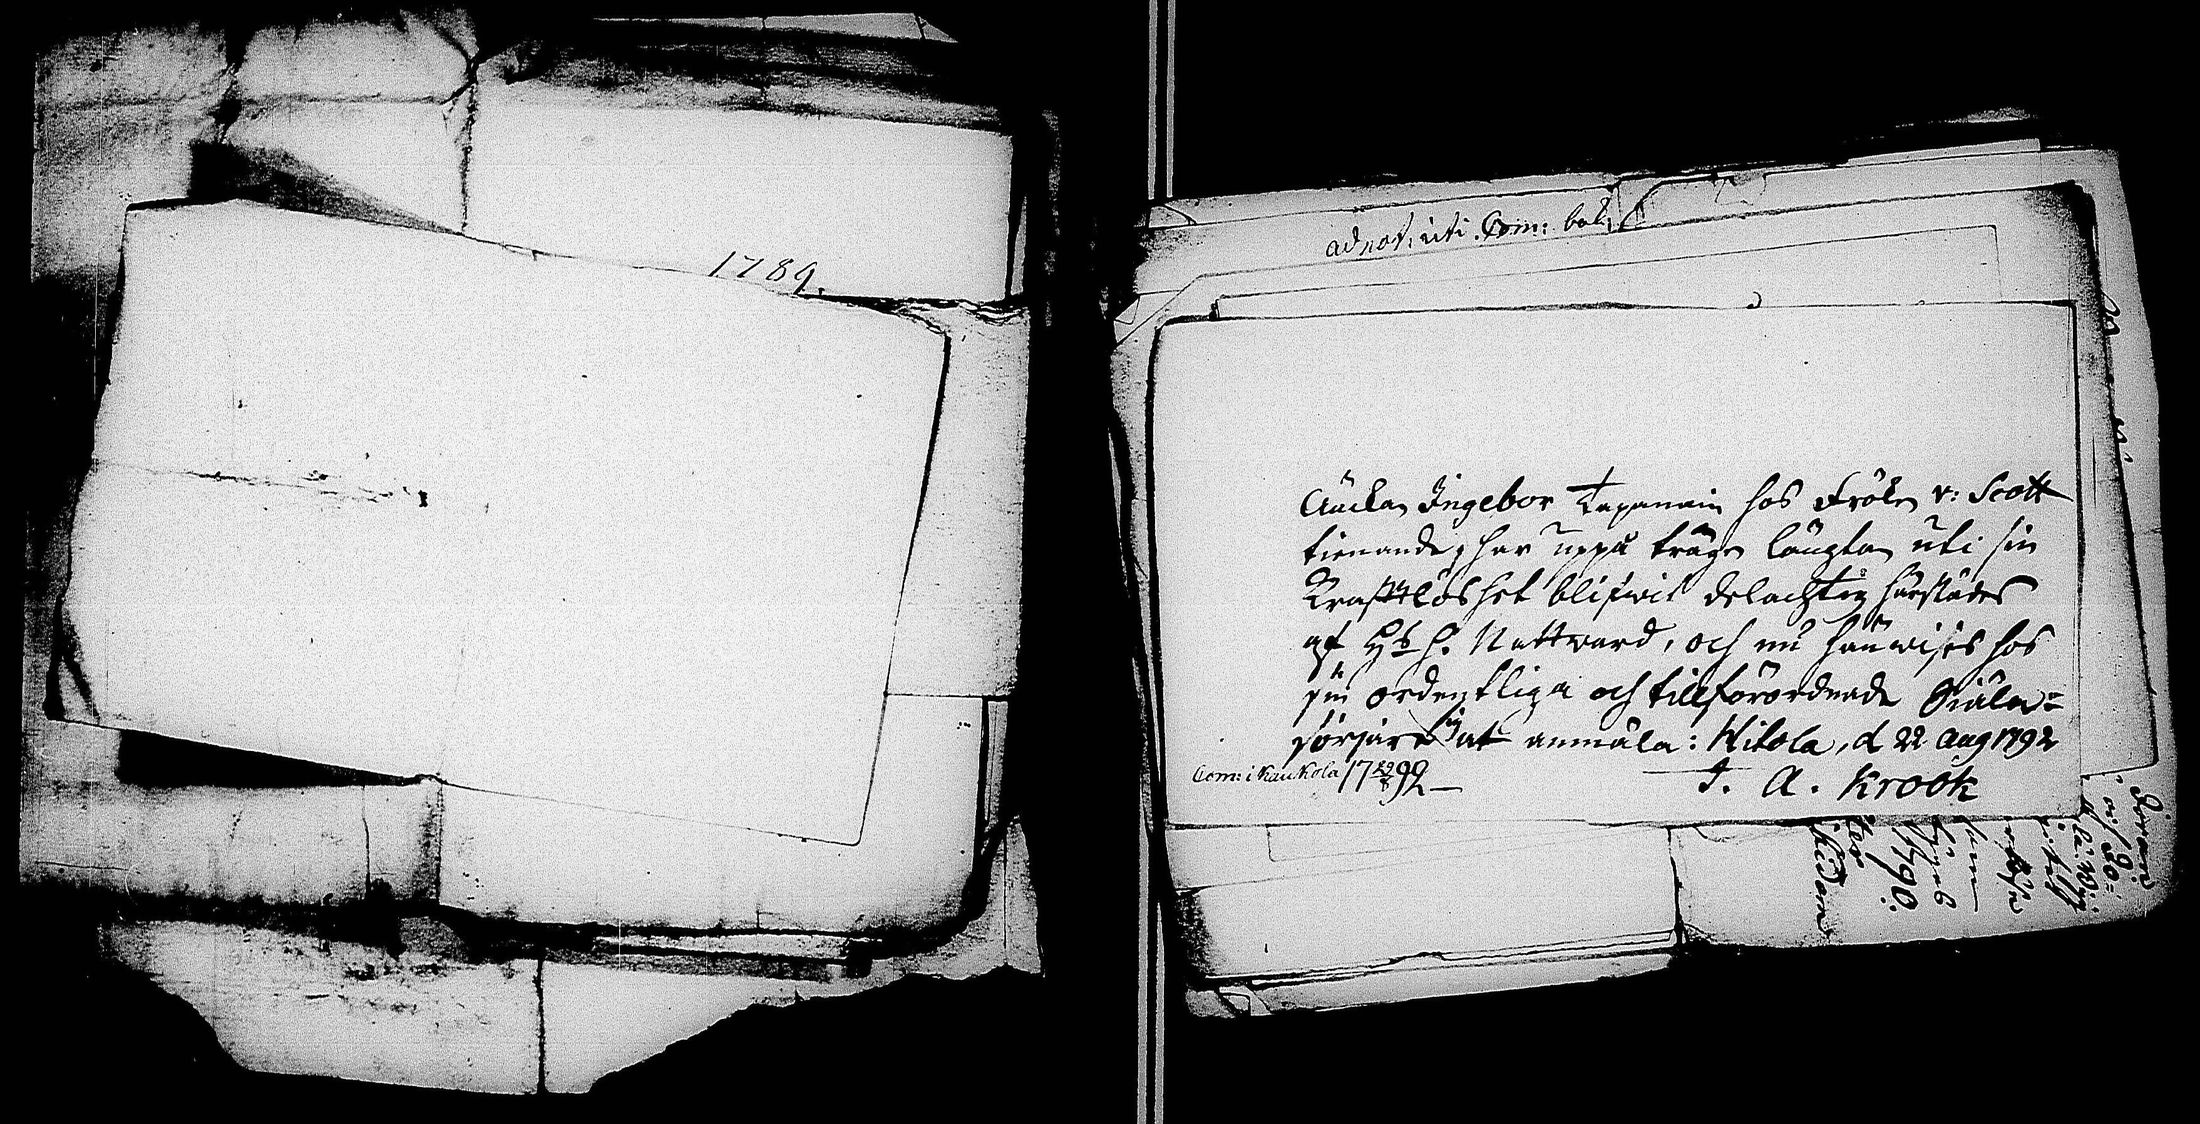 1789.
adnot: uti Com: bok,
Änckan Ingebor Tapanain hos Frökn v: Scott
tienande, har uppå trägen längtan uti sin
Kraftlöshet blifwit delachtig härstädes
af HS H. Nattward, och nu hänwises hos
sin ordentliga och tillförordnade Siäla=
sörjare sig at anmäla: Hitola, d 22 Aug 1792
J. A. Krook
Com: i Kaukola 17 92
1790.